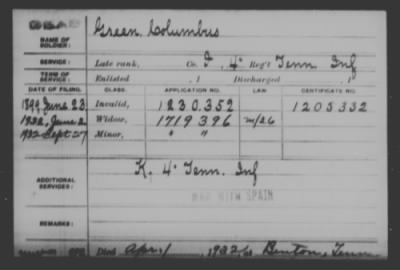 DEAD
NAME OF SOLDIER: Green, Columbus
SERVICE: Late rank, Co. F, 4" Reg't Tenn Inf
TERM OF SERVICE: Enlisted , 1 Discharged , 1
DATE OF FILING. CLASS. APPLICATION NO. LAW CERTIFICATE NO.
1899 June 23 Invalid, 1230352 1205332
1932, June 2 Widow, 1719396 m/26
1932 Sept 27 Minor, " "
ADDITIONAL SERVICES: K. 4" Tenn. Inf
WAR WITH SPAIN
REMARKS:
Died Apr. 1 1932, at Benton, Tenn